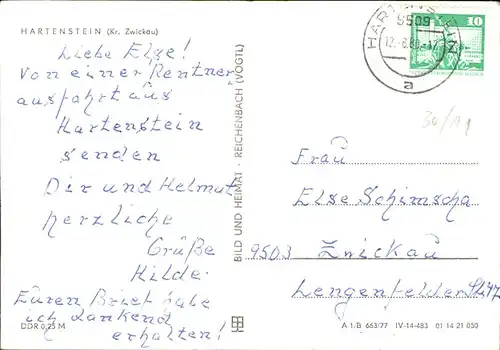 HARTENSTEIN (Kr. Zwickau)
Liebe Else!
Von einer Rentner
ausfahrt aus
Hartenstein
senden
Dir und Helmut
herzliche
Grüße
Hilde.
Euren Brief habe
ich dankend
erhalten!
DDR 0,25 M
BILD UND HEIMAT · REICHENBACH (VOGTL)
HARTENSTEIN
9509
a
10
30/11
Frau
Else Schimscha
9503 Zwickau
Lengenfelder
A 1/B 663/77 IV-14-483 01 14 21 050